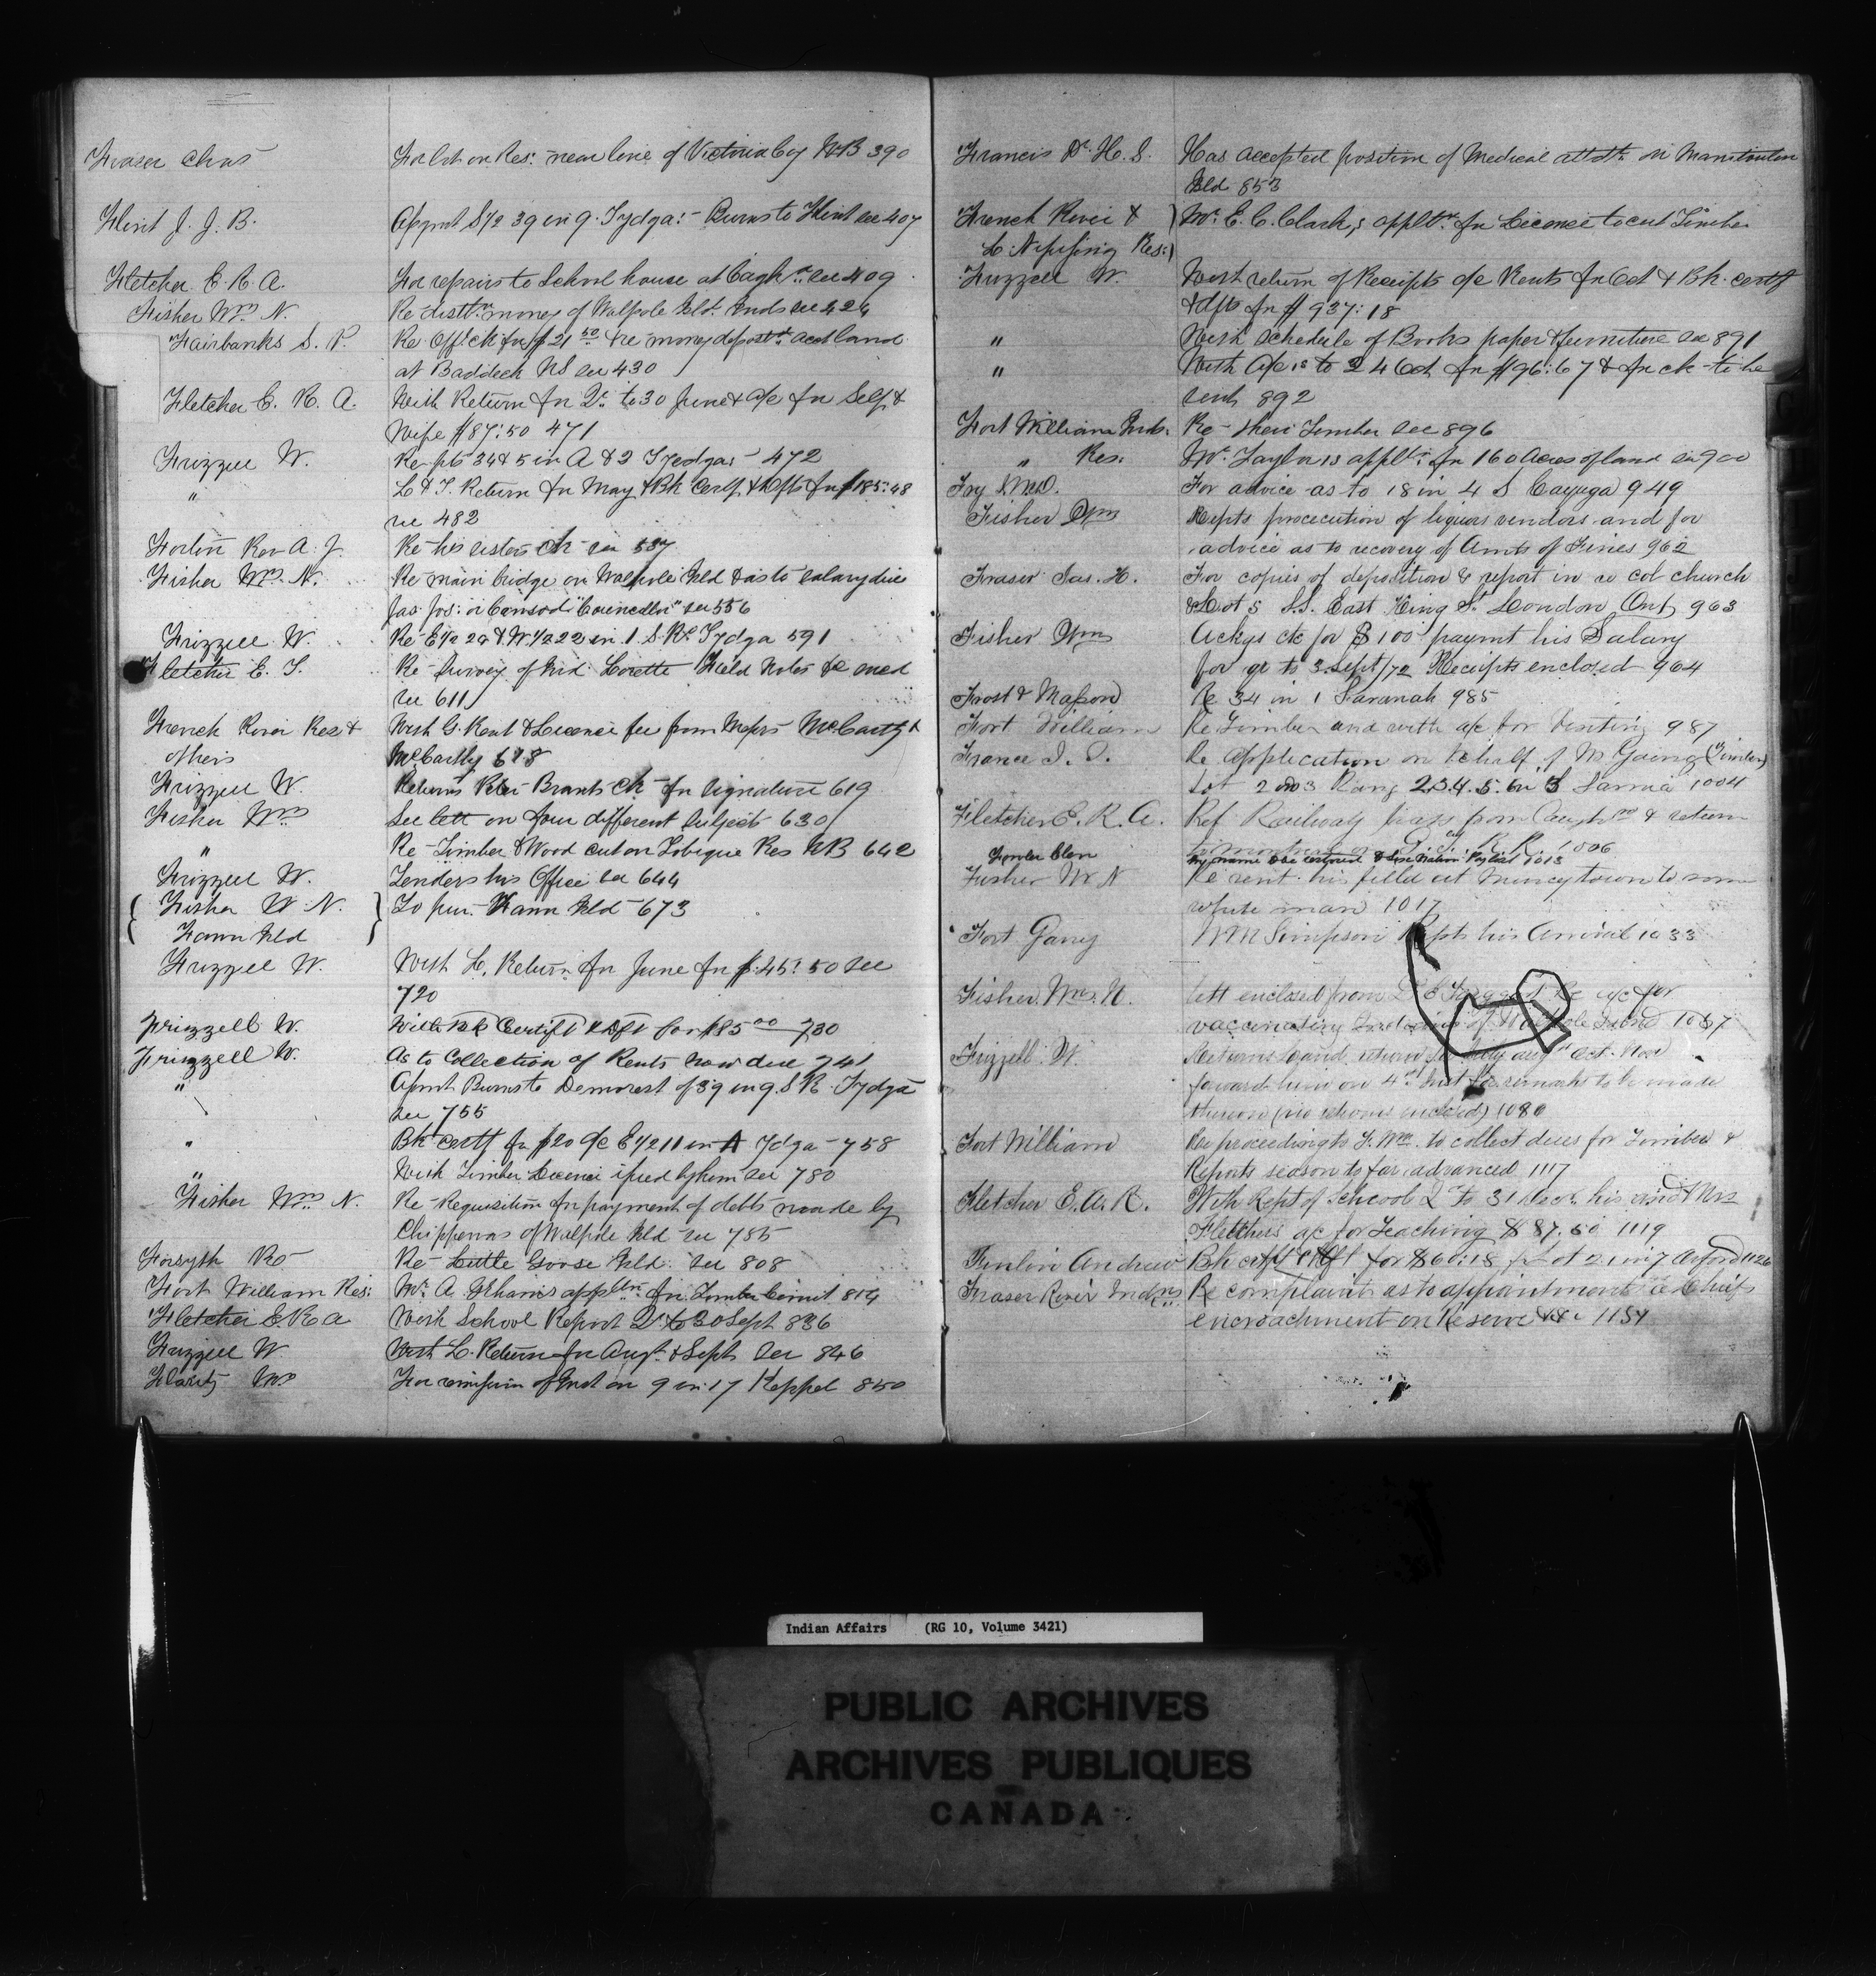 Fraser Chas For lot on Res: near line of Victoria Coy NB 390
Flint J. J. B. Assgnt S½ 39 in 9. Tydga: - Burns to Flint see 407
Fletcher E. R. A. For repairs to School house at Caugh see 409
Fisher Wm N. Re distn money of Walpole Isld. Inds see 424
Fairbanks S. P. Re Off: ck for $21 50 & re money depostd acct land
at Baddeck NS see 430
Fletcher E. R. A. With Return for Qr to 30 June & a/c for Self &
Wife $87:50 471
Frizzell W. Re pts 34 & 5 in A & 2 Tyedga: 472
" L & T. Return for May & Bk Certf. & Dft for $185:48
see 482
Fortin Rev A. J. Re his sisters ck see 537
Fisher Wm N. Re main bridge on Walpole Isld & as to salary due
Jas. Jos: "Councellor" see 556
Frizzell W. Re E½ 22 & W.½ 22 in 1 S.R. Tydga 591
Fletcher E. T. Re Survey of Ind. Lorette Field Notes &c
see 611
French River Res & With G. Rent & Licence fee from Messrs McCarthy &
others McCarthy 618
Frizzell W. Returns Peter Brants ck for signature 619
Fisher Wm See lett on four different subjects 630
" Re Timber & Wood cut on Tobique Res NB 642
Frizzell W. Tenders his Office see 644
{ Fisher W. N. } To pur. Fawn Isld 673
Fawn Isld
Frizzell W. With L. Return for June for $45:50 see
720
Frizzell W. With Bk Certift & Dft for $85 00 730
Frizzell W. As to Collection of Rents now due 741
" Assmt Burns to Demorest of 39 in 9. S.R. Tydga
see 755
" Bk certf for $20 o/c E½ 11 in A Tydga 758
" With Timber Licence issued by him see 780
Fisher Wm N. Re Requisition for payment of debts made by
Chippewas of Walpole Isld see 785
Forsyth Ro Re Little Goose Isld. see 808
Fort William Res: Mr. A. appltn for Timber Limit 814
Fletcher E R A With School Report Qr to 30 Sept 836
Frizzell W. With L. Return for Augt & Septr see 846
Wm For remission of Inst on 9 in 17 Keppel 850
Francis Dr. H. S. Has accepted position of Medical attdt on Manitoulin
Isld 853
French River & ) Mr. E. C. Clark's appltn for Licence to cut Timber
L. Nipissing Res: )
Frizzell W. With return of Receipts o/c Rents for Oct & Bk. certf
& dft for $937:18
" With schedule of Books paper & furniture see 891
" With a/c to 24 Oct for $96:67 & for ck to be
sent 892
Fort William Inds. Re their Timber see 896
" Res. Mr. Taylor's appltn for 160 Acres of land see 900
For advice as to 18 in 4 S Cayuga 949
Fisher Wm Repts procecution of liquor vendors and for
advice as to recovery of Amts of Fines 962
Fraser Jas. H. For copies of deposition & report in re col church
& Lot 5 S.S. East King St. London Ont 963
Fisher Wm Ackgs ck for $100 paymt his Salary
for qr to 3 Sept/72 Receipts enclosed 964
Frost & Masson Re 34 in 1 Saranah 985
Fort William Re Timber and with a/c for Visiting 987
France I. T. Re Application on behalf of M. (Timber)
Lot 2 and 3 Rang 2.3.4.5. 6 in 3 Sarnia 1004
Fletcher E. R. A. Ref Railway pass from Caugh & return
to Montreal R. R. 1006
Fowler Elon My name to be restored Paylist 1013
Fisher W N Re rent his filled at Munceytown to some
white man 1017
Fort Garry W M Simpson Repts his Arrival 1033
Fisher. Wm. N. lett enclosed from Re a/c for
vaccinating Indians of Walpole Island 1057
Frizzell W. Returns Land return for July augt Oct. Nov
forward him on 4th Inst for remarks to be made
thereon (no returns enclosed) 1080
Fort William Re proceedings to collect dues for Timber &
Reports season to far advanced 1117
Fletcher E. A. R. With Rept of School Qr to 31 Decr. his and Mrs
Fletchers a/c for Teaching $87.50 1119
Andrew Bk certf & dft for $60:18 p Lot 21 in 7 1126
Fraser River Indns Re complaints as to appointment of Chiefs
encroachment on Reserve &c 1154
Indian Affairs (RG 10, Volume 3421)
PUBLIC ARCHIVES
ARCHIVES PUBLIQUES
CANADA